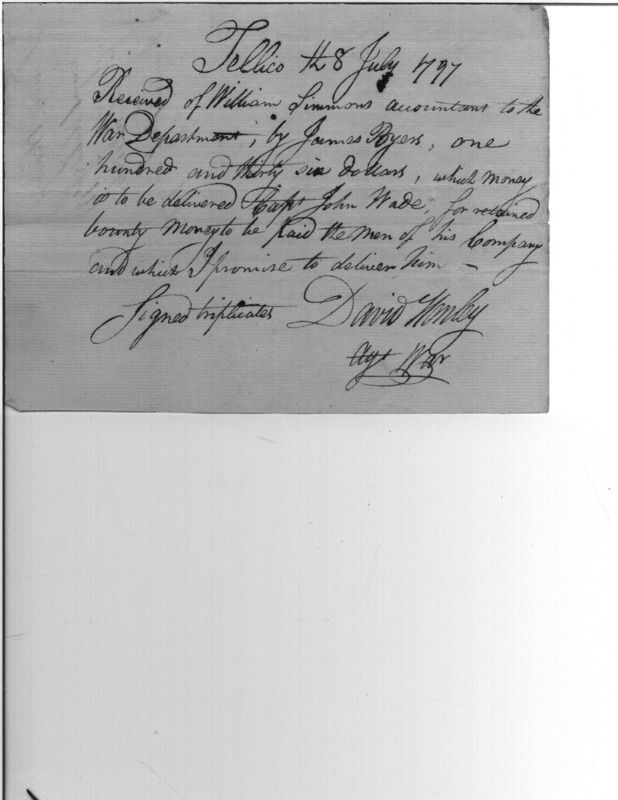 Tellico th 8 July 1797
Received of William Simmons accountant to the
War Department, by James Byers, one
hundred and thirty six dollars, which money
is to be delivered Capt John Wade, for retained
bounty money to be paid the men of his Company
and which I promise to deliver him —
Signed triplicates David Henley
Agt War